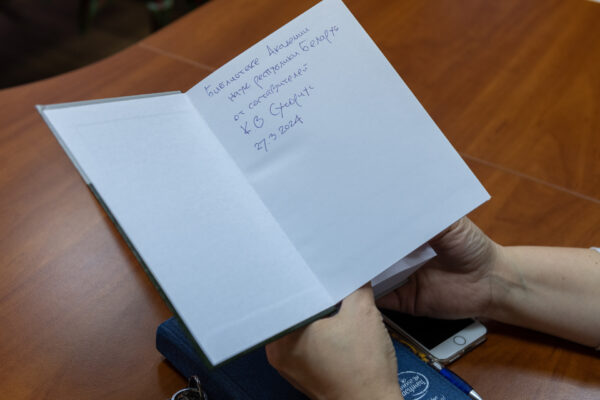 Библиотеке Академии
наук республики Беларусь
от составителей
27.3.2024